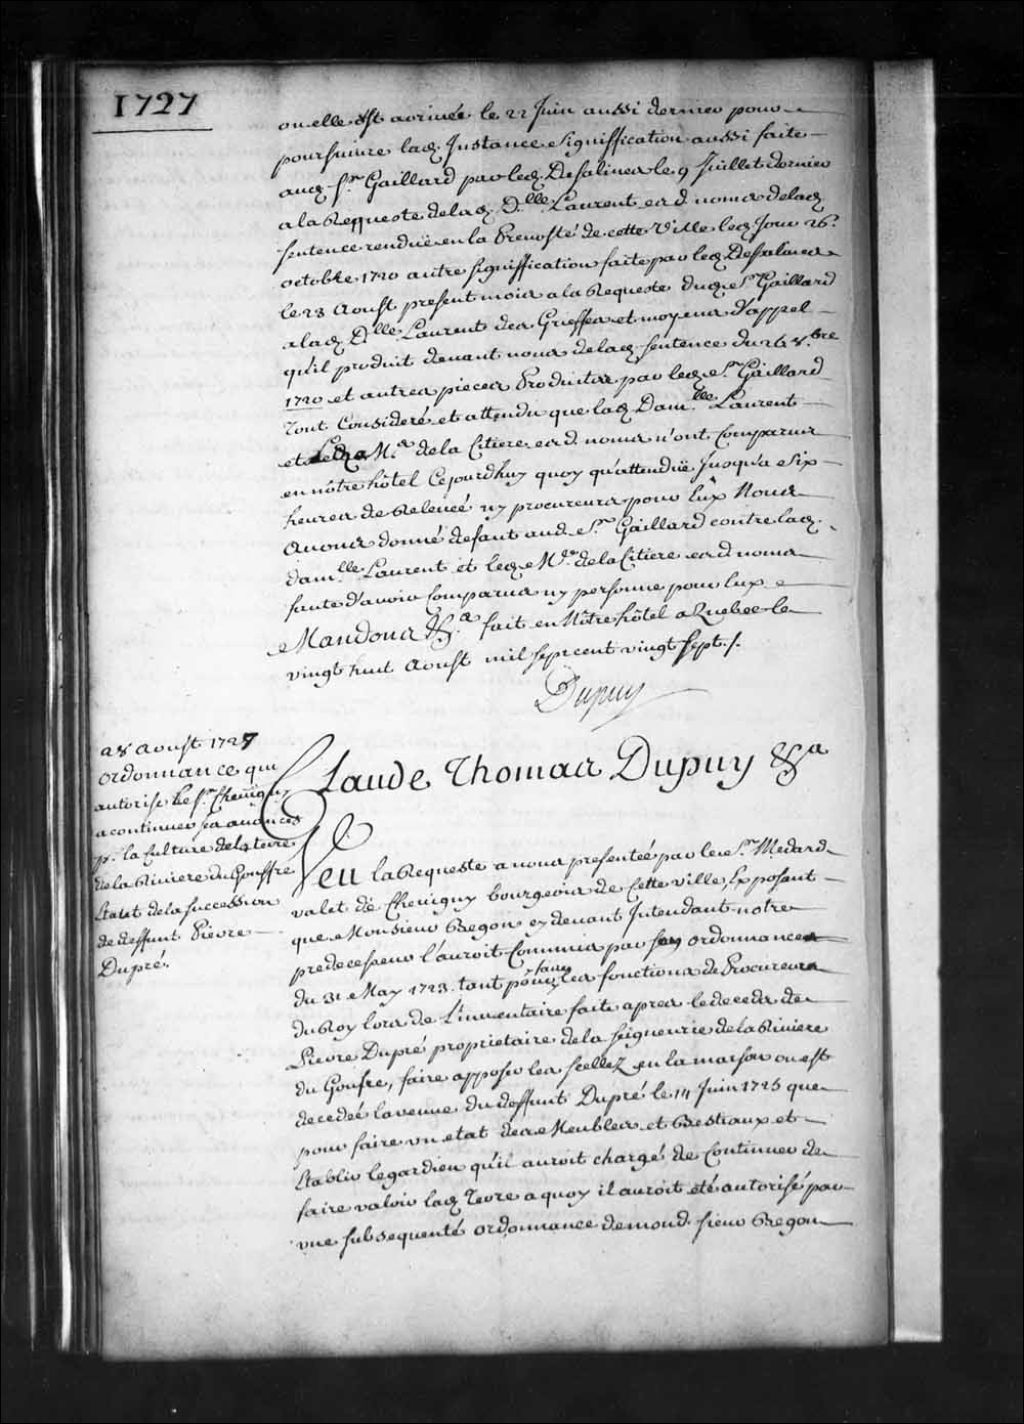 1727
ou elle est arrivée le 22 Juin aussi dernier pour
poursuivre lad. Instance signiffication aussi faite
aud. Sr. Gaillard par led. Desalines le 9 Juillet dernier
a la Requeste de lad. Dlle. Laurent esd. noms de lad.
sentence renduë en la Prevosté de cette Ville led. Jour 26.
octobre 1720 autre signiffication faite par led. Desalines
le 23 Aoust present mois a la Requeste dud. Sr. Gaillard
a lad. Dlle. Laurent des Grieffes et moyens d'appel
qu'il produit devant nous de lad. sentence du 26 8.bre
1720 et autres pieces Produites par led. Sr. Gaillard
Tout Consideré et attendu que lad. Dam.lle Laurent
et led. Mr. de la Citiere esd. noms n'ont Comparus
en nôtre hôtel Cejourdhuy quoy qu'attenduë Jusqu'a Six
heures de Relevée ny procureurs pour Eux Nous
Avons donné defaut aud. Sr. Gaillard contre lad.
dam.lle Laurent et led. Mr. de la Citiere esd. noms
faute d'avoir Comparus ny personne pour Eux
Mandons &.a fait en Nôtre hôtel a Quebec le
vingt huit Aoust mil sept cent vingt sept ./.
Dupuy
28 Aoust 1727
Ordonnance qui
autorise le Sr. Chevigny
a continuer ses avances
pr. la Culture de la terre
de la Riviere du Gouffre
Estant de la succession
de deffunt Pierre
Dupré.
Claude Thomas Dupuy &a
Veu la Requeste a nous presentée par le Sr. Medard
valet de Chevigny bourgeois de Cette ville, Exposant
que Monsieur Begon cy devant Intendant notre
predecesseur l'auroit Commis par son ordonnance
du 31 May 1723. tant pour faire les fonctions de Procureur
du Roy lors de L'inventaire faite apres le deceds de
Pierre Dupré proprietaire de la seigneurie de la Riviere
du Goufre, faire apposer les scellez en la maison ou est
decedeé la veuve du deffunt Dupré le 14 Juin 1725 que
pour faire un etat des Meubles et Bestiaux et
Etablir le gardien qu'il auroit chargé de Continuer de
faire valoir lad. Terre a quoy il auroit eté autorisé par
une subsequente ordonnance de mond. sieur Begon